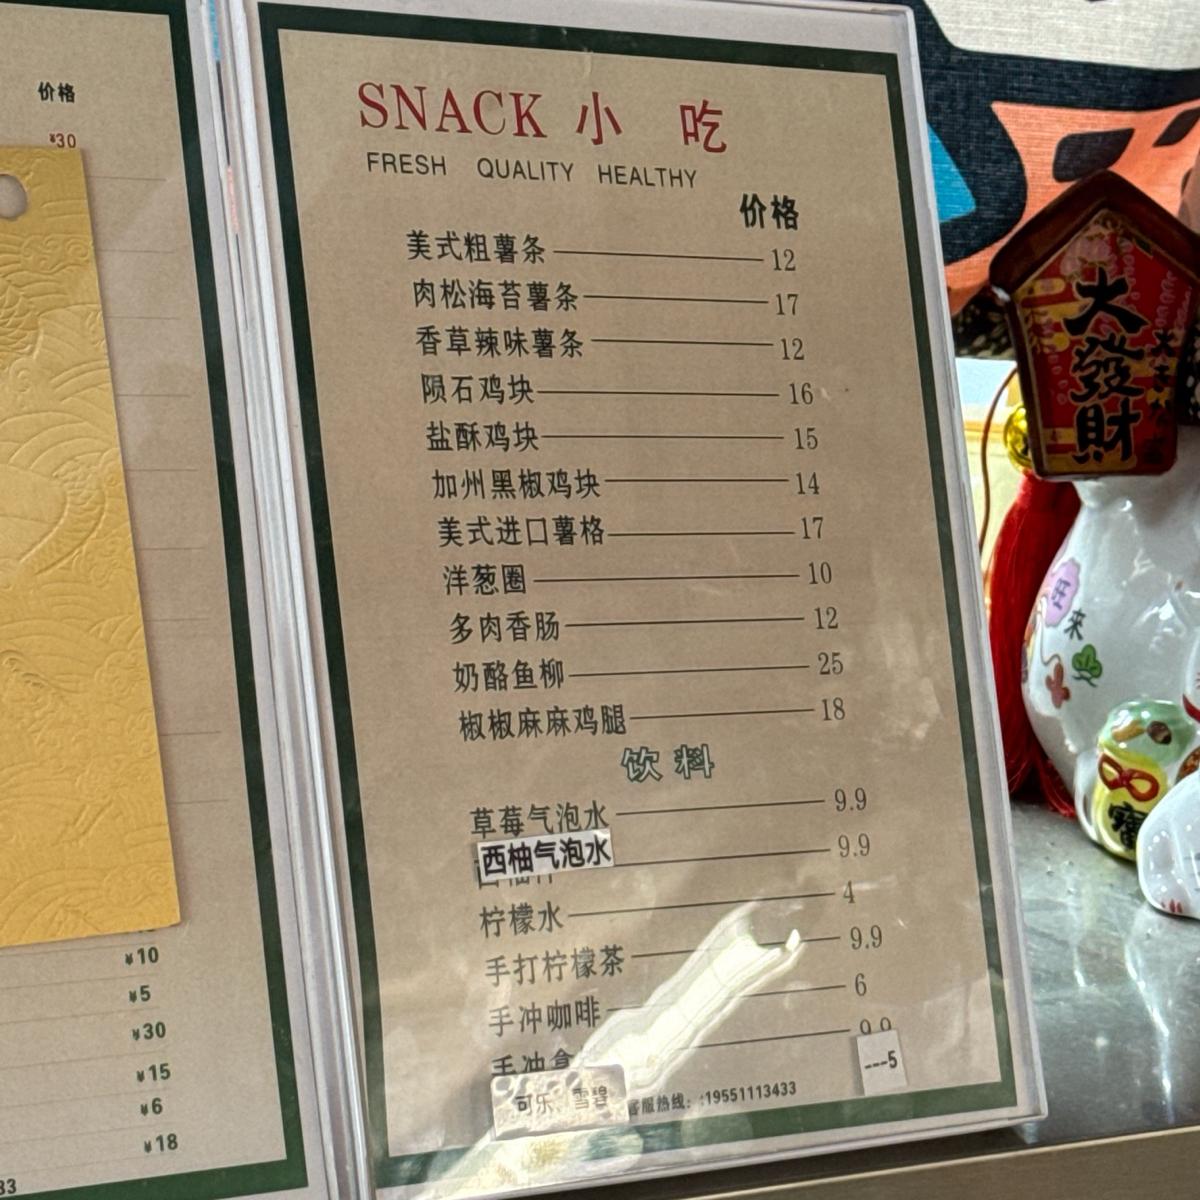 价格
¥30
¥10
¥5
¥30
¥15
¥6
¥18
33
SNACK 小 吃
FRESH QUALITY HEALTHY
价格
美式粗薯条 12
肉松海苔薯条 17
香草辣味薯条 12
陨石鸡块 16
盐酥鸡块 15
加州黑椒鸡块 14
美式进口薯格 17
洋葱圈 10
多肉香肠 12
奶酪鱼柳 25
椒椒麻麻鸡腿 18
饮料
草莓气泡水 9.9
西柚气泡水 9.9
柠檬水 4
手打柠檬茶 9.9
手冲咖啡 6
手冲拿 9.9
可乐、雪碧 ---5
客服热线：:19551113433
大發財
大吉
旺来
寶